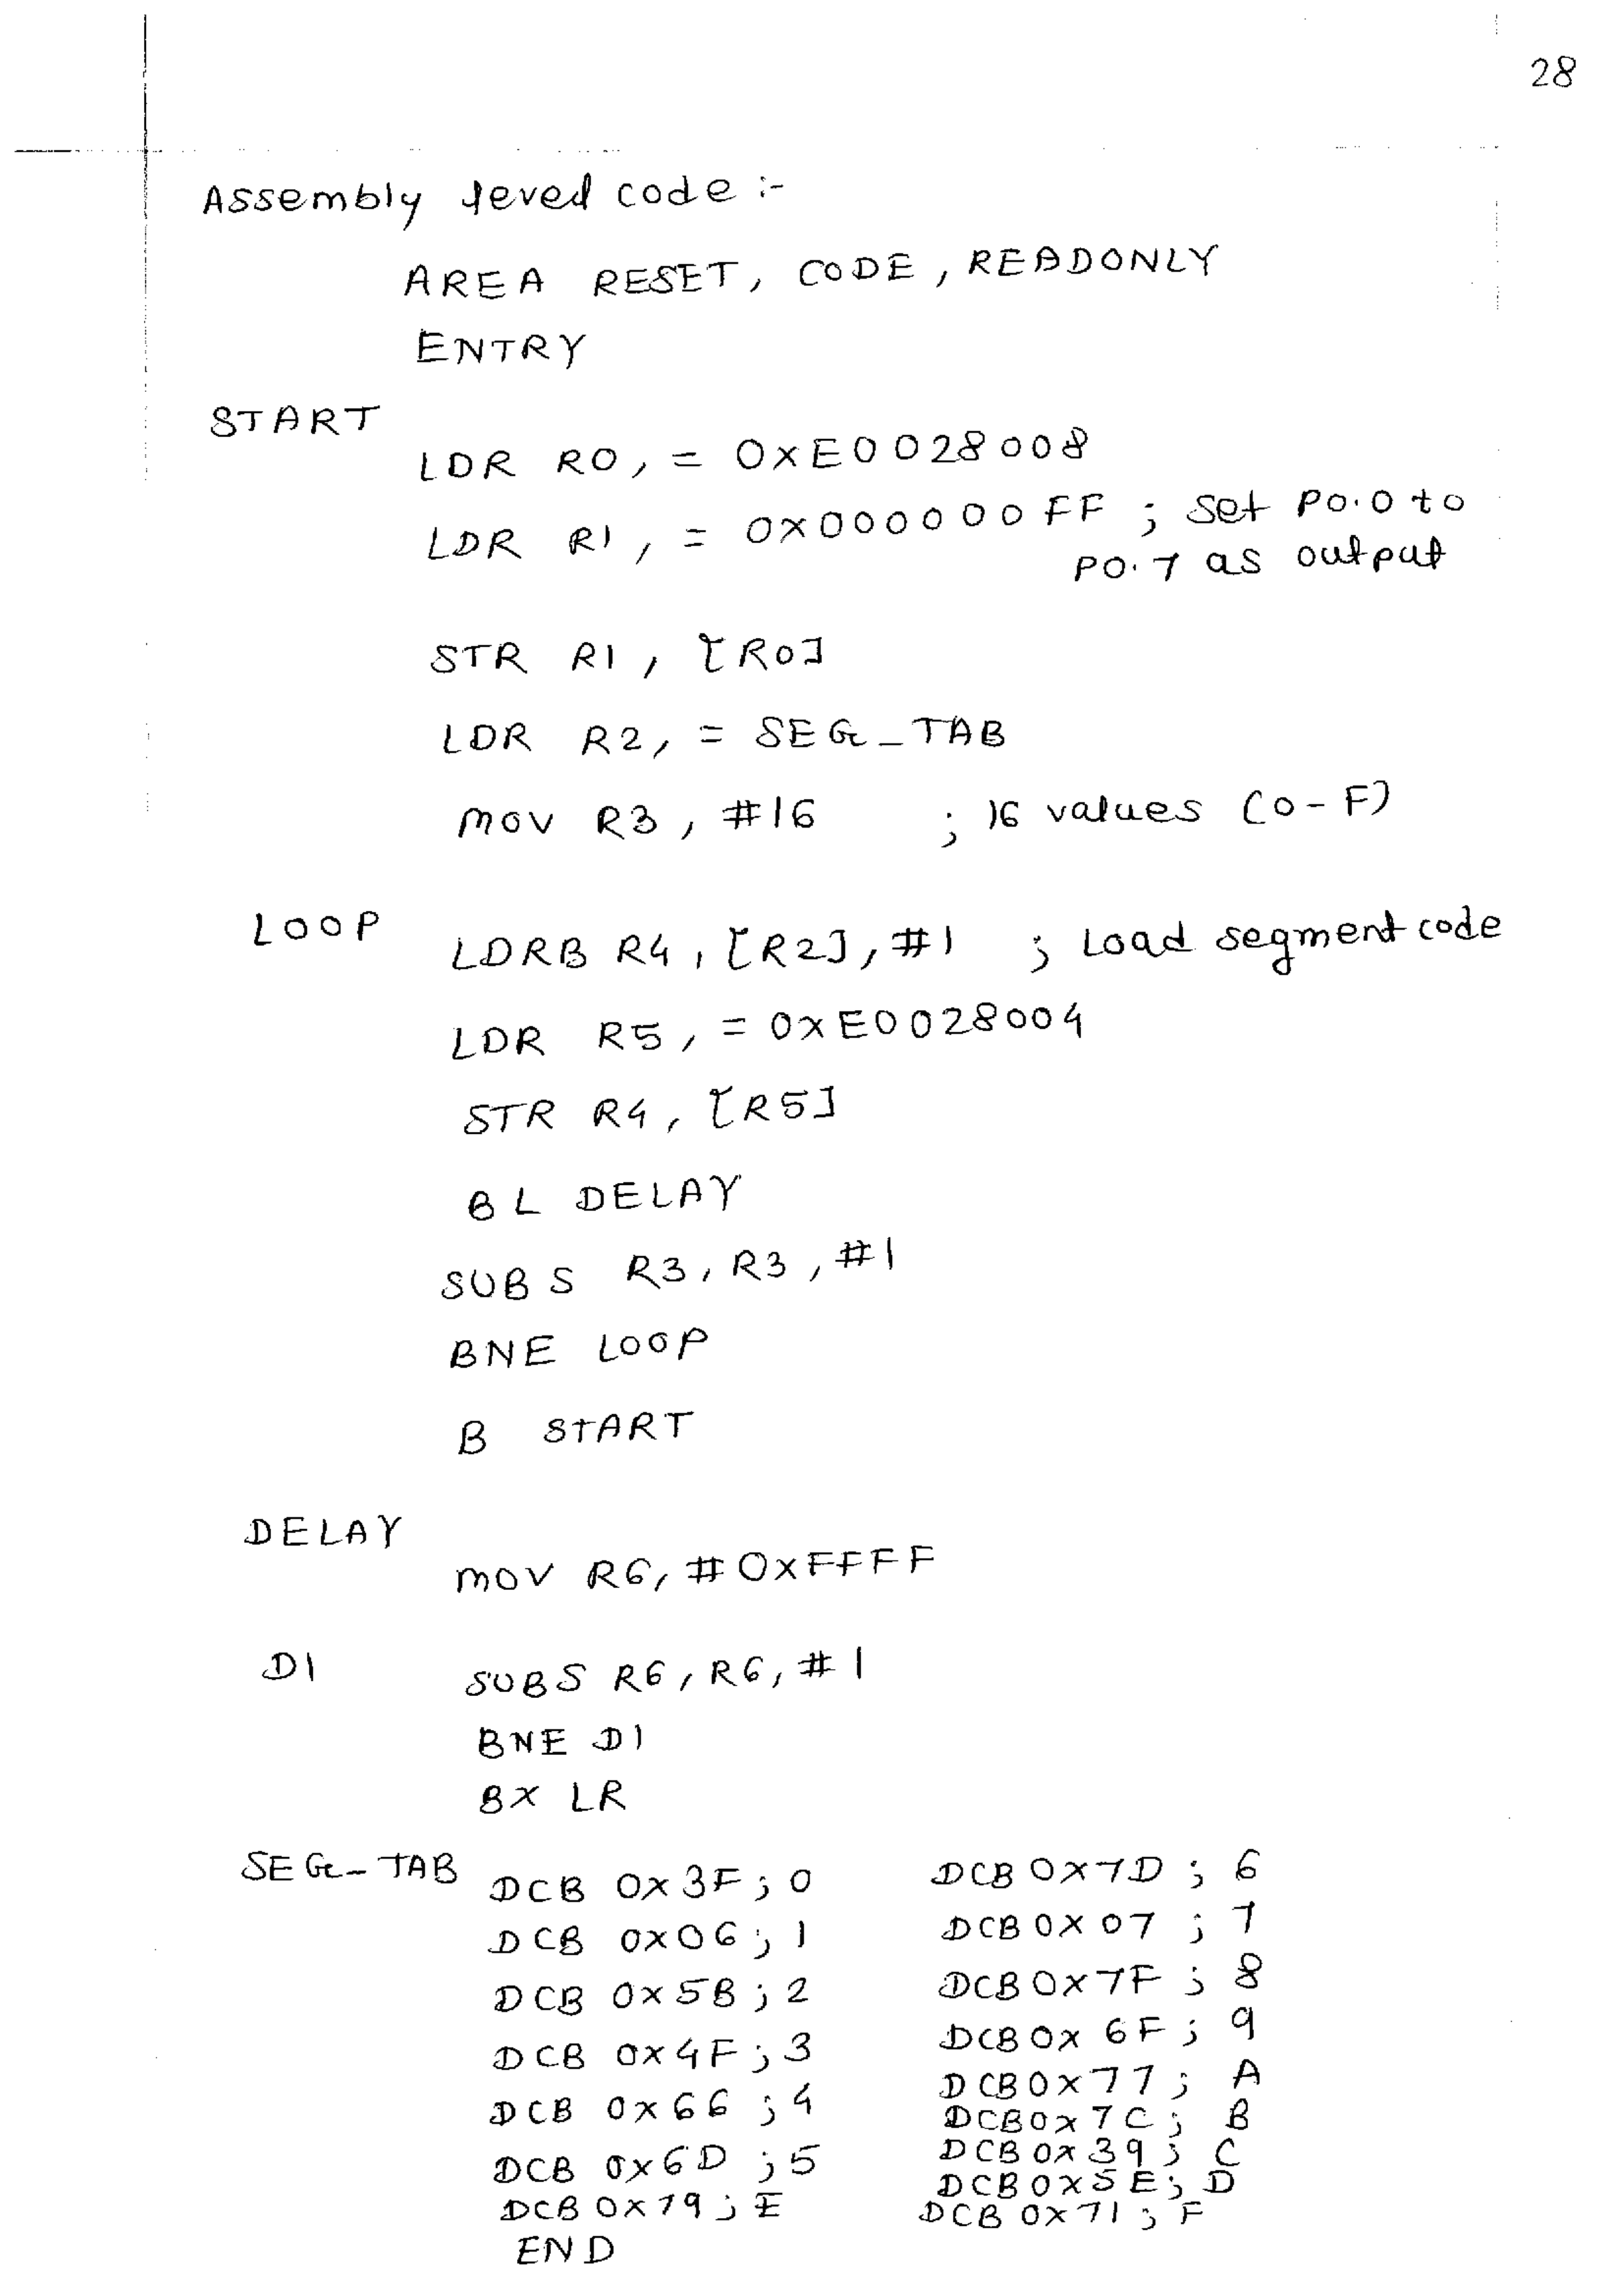 28
Assembly level code :-
AREA RESET, CODE, READONLY
ENTRY
START
LDR R0, = 0xE0028008
LDR R1, = 0x000000FF ; set P0.0 to
P0.7 as output
STR R1, [R0]
LDR R2, = SEG_TAB
MOV R3, #16 ; 16 values (0-F)
LOOP LDRB R4, [R2], #1 ; Load segment code
LDR R5, = 0xE0028004
STR R4, [R5]
BL DELAY
SUBS R3, R3, #1
BNE LOOP
B START
DELAY
MOV R6, #0xFFFF
D1 SUBS R6, R6, #1
BNE D1
BX LR
SEG_TAB DCB 0x3F ; 0 DCB 0x7D ; 6
DCB 0x06 ; 1 DCB 0x07 ; 7
DCB 0x5B ; 2 DCB 0x7F ; 8
DCB 0x4F ; 3 DCB 0x6F ; 9
DCB 0x66 ; 4 DCB 0x77 ; A
DCB 0x7C ; B
DCB 0x6D ; 5 DCB 0x39 ; C
DCB 0x5E ; D
DCB 0x79 ; E DCB 0x71 ; F
END